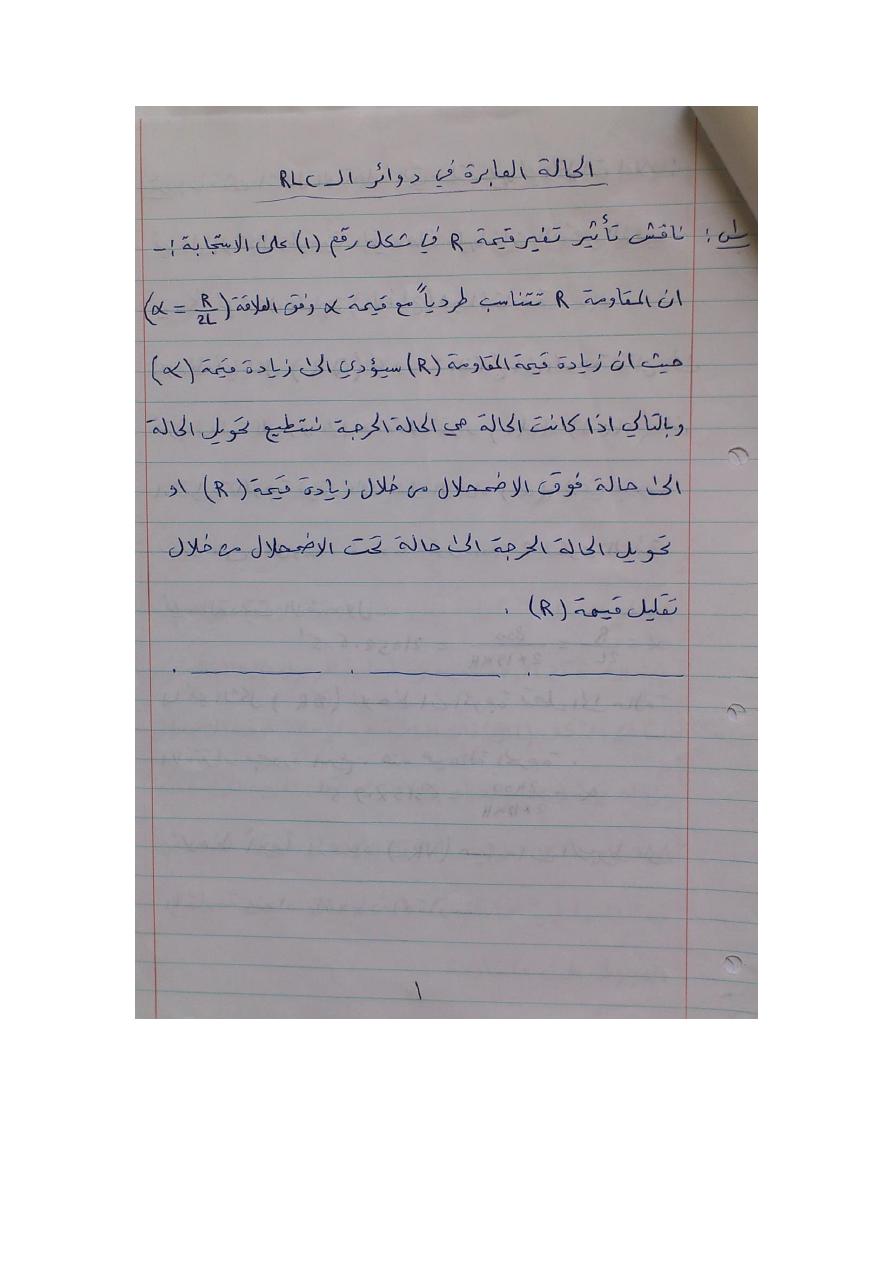 الحالة العابرة في دوائر الـ RLC
س: ناقش تأثير تغير قيمة R في شكل رقم (١) على الاستجابة :-
ان المقاومة R تتناسب طردياً مع قيمة α وفق العلاقة (α = R/2L)
حيث ان زيادة قيمة المقاومة (R) سيؤدي الى زيادة قيمة (α)
وبالتالي اذا كانت الحالة هي الحالة الحرجة نستطيع تحويل الحالة
الى حالة فوق الاضمحلال من خلال زيادة قيمة (R) او
تحويل الحالة الحرجة الى حالة تحت الاضمحلال من خلال
تقليل قيمة (R) .
١